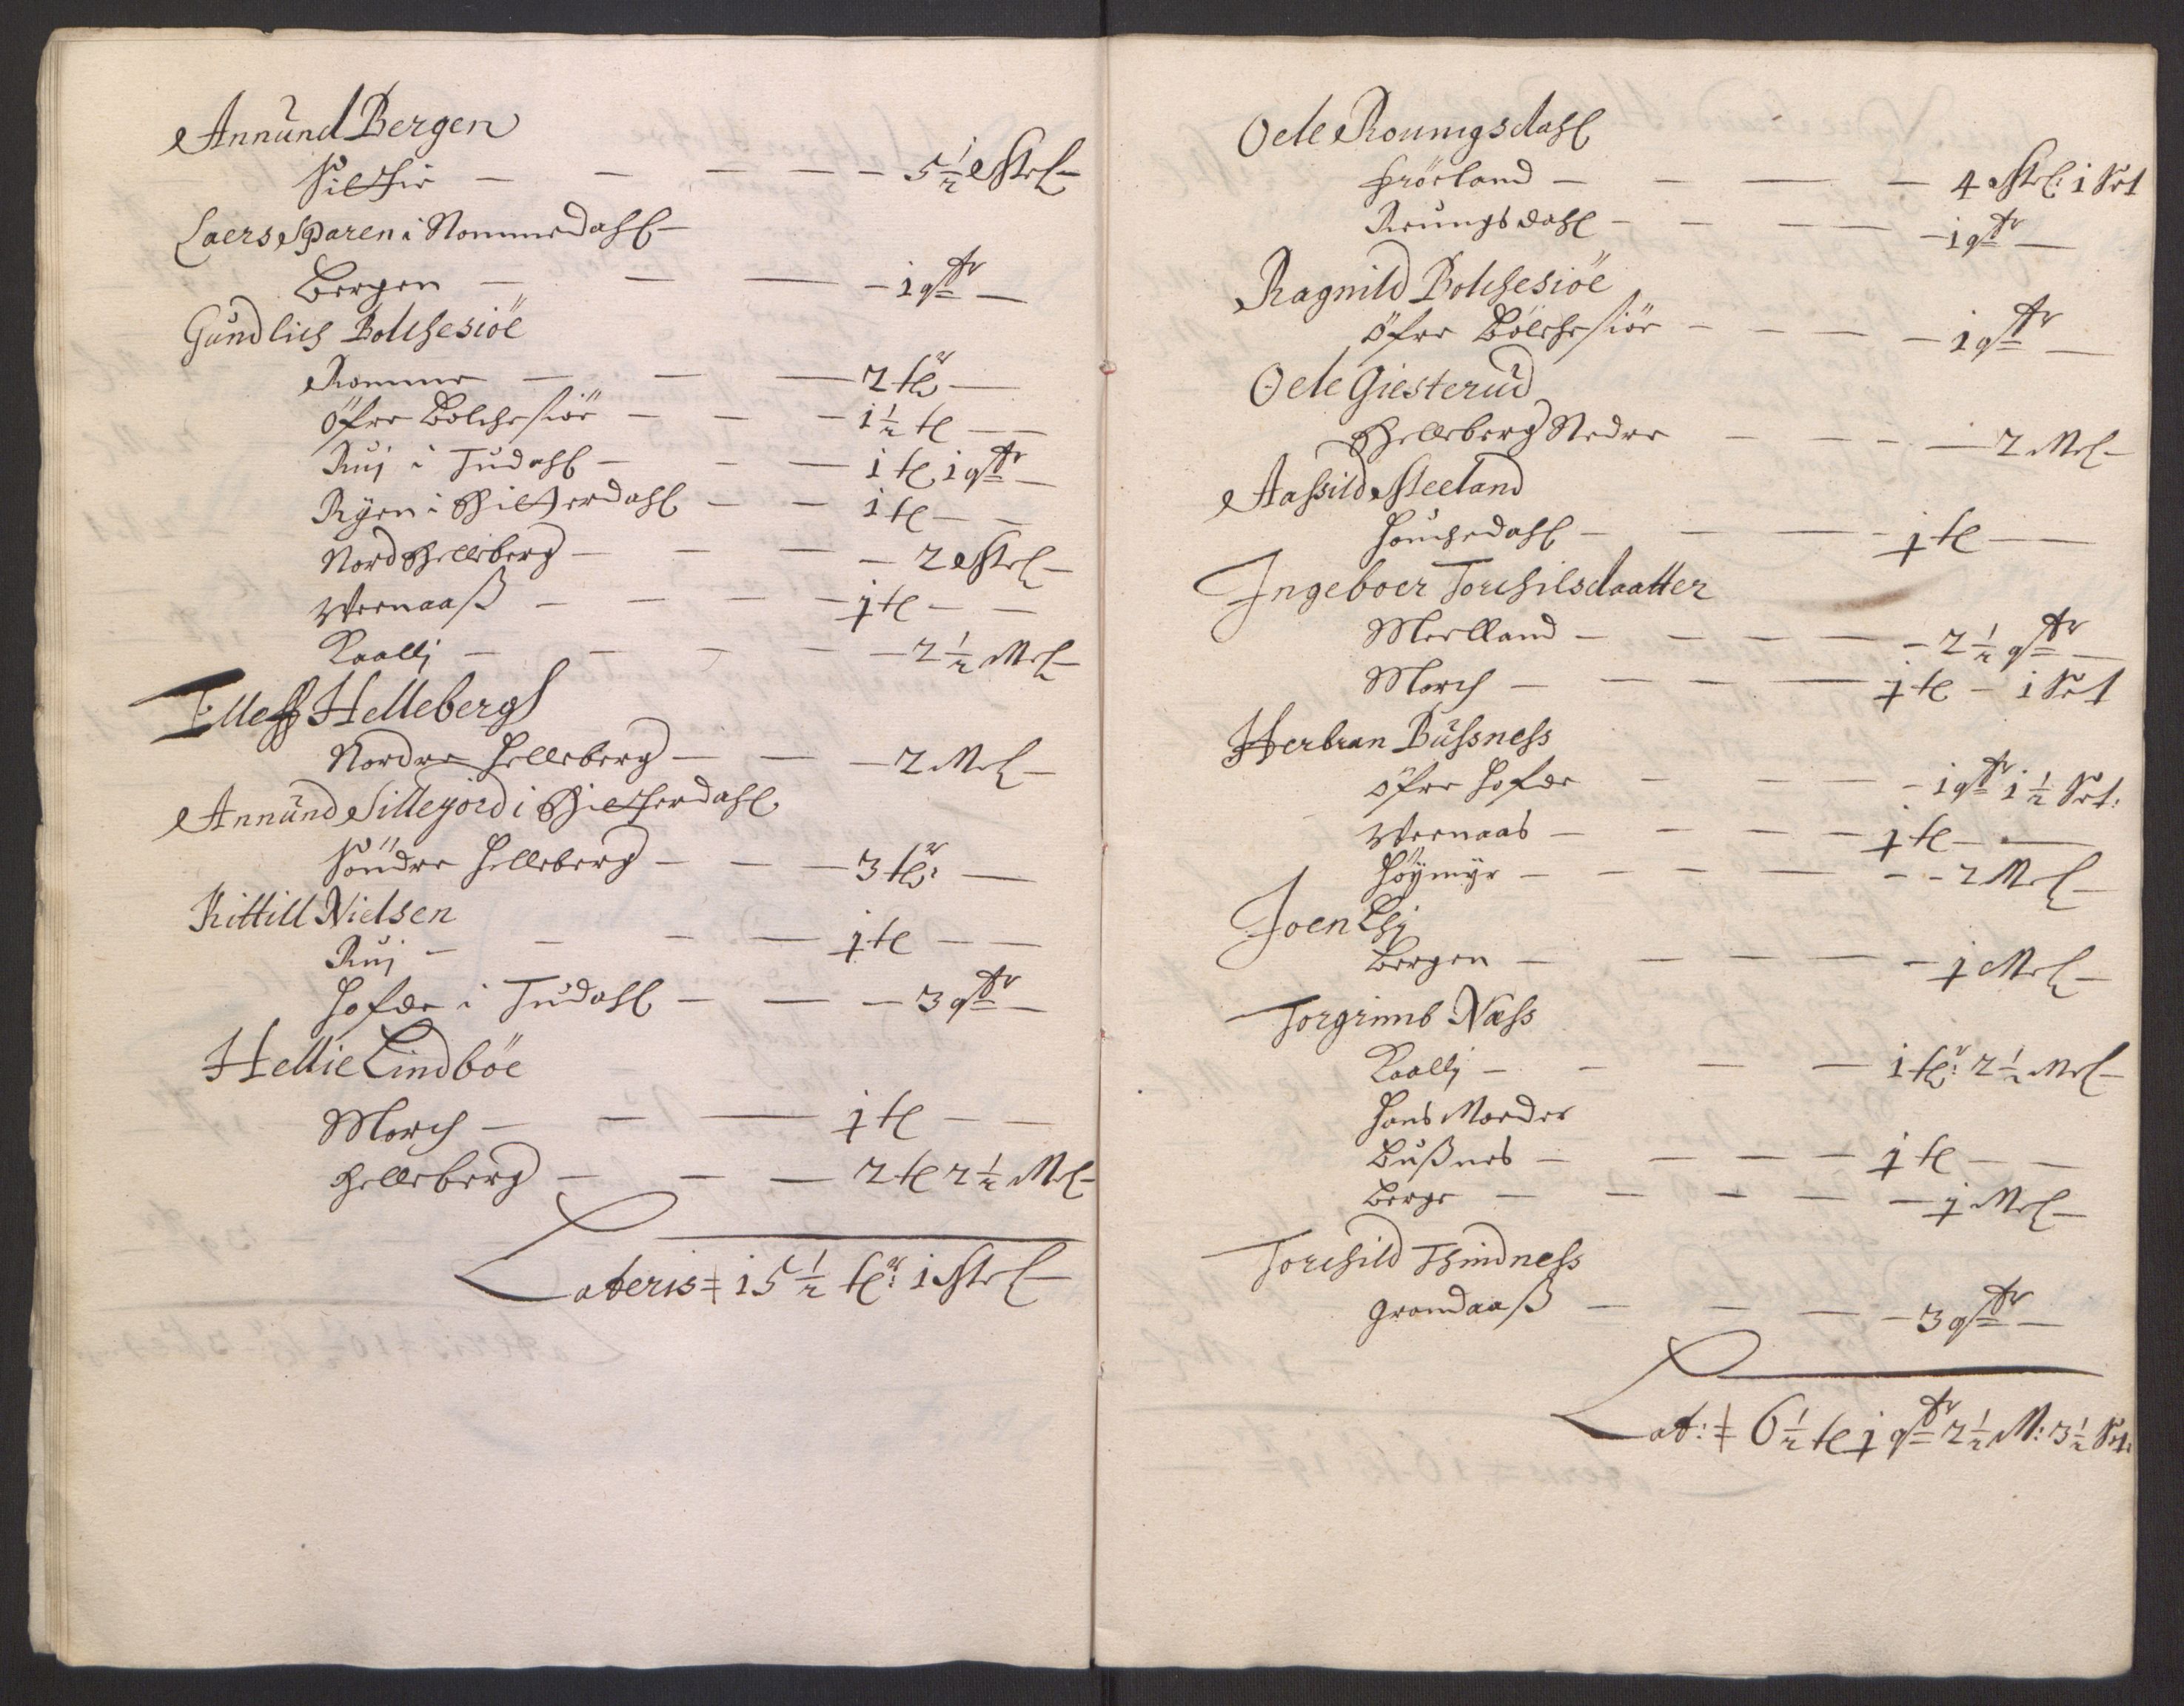 Annund Bergen
Siltvie — — — — — 5 1/2 Mel —
Laers Sparen i Nommedahl —
Bergen — — — — 1 qtr —
Gundlich Bolchesiöe
Romme — — — 2 tlr —
öfre Bolchesiöe — — — 1 1/2 tl — —
Ruj i Tudahl — — — 1 tl 1 qtr —
Ryen i Hitterdahl — — 1 tl — —
Nord Helleberg — — — — 2 Mel —
Wernaaß — — — — 1 tl — —
Kaallj — — — — 2 1/2 Mel —
Elleff Helleberg
Nordre Helleberg — — — 2 Mel —
Annund Sillejord i Hitterdahl
Söndre Helleberg — — — 3 tlr: —
Kittill Nielsen
Ruj — — — — 1 tl — —
Hofde i Tudahl — — — 3 qtr —
Hellie Lindböe
March — — — 1 tl — —
Helleberg — — — 2 tl 2 1/2 Mel —
Lateris = 15 1/2 tlr: 1 Mel —
Oele Roungsdahl
Fröeland — — — — 4 Mel: 1 Set
Roungsdahl — — — — — 1 qtr —
Ragnild Bolchesiöe
öfre Bölchesiöe — — — — 1 qtr —
Oele Giesterud
Helleberg Nedre — — — — 2 Mel —
Aaßild Meeland
Houchedahl — — — — 1 tl — —
Ingeboer Torchilsdaatter
Moelland — — — — — 2 1/2 qtr —
March — — — — 1 tl — 1 Set
Herbran Bussness
öfre Hofde — — — — 1 qtr 1 1/2 Set:
Wernaas — — — — 1 tl — —
Höymyr — — — — — 2 Mel —
Joen Lhj
Bergen — — — — — 1 Mel —
Torgrimb Næss
Kaallj — — — — 1 tlr: 2 1/2 Mel —
Hans Morder
Bußnes — — — — 1 tl — —
Berge — — — — — 1 Mel —
Torchild Thindness
Grandaaß — — — — 3 qtr —
Lat: = 6 1/2 tl 1 qtr 2 1/2 M: 3 1/2 Set: